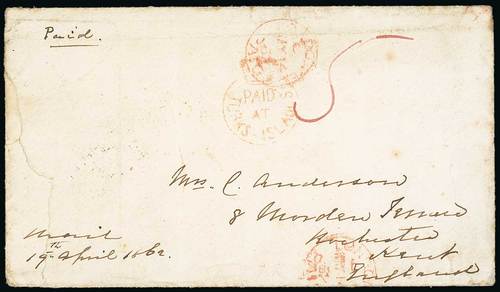 Paid.
PAID
AT
TURKS ISLANDS
Mrs. C. Anderson
8 Morden Terrace
Rochester
Kent
England
Mail
19th April 1862.